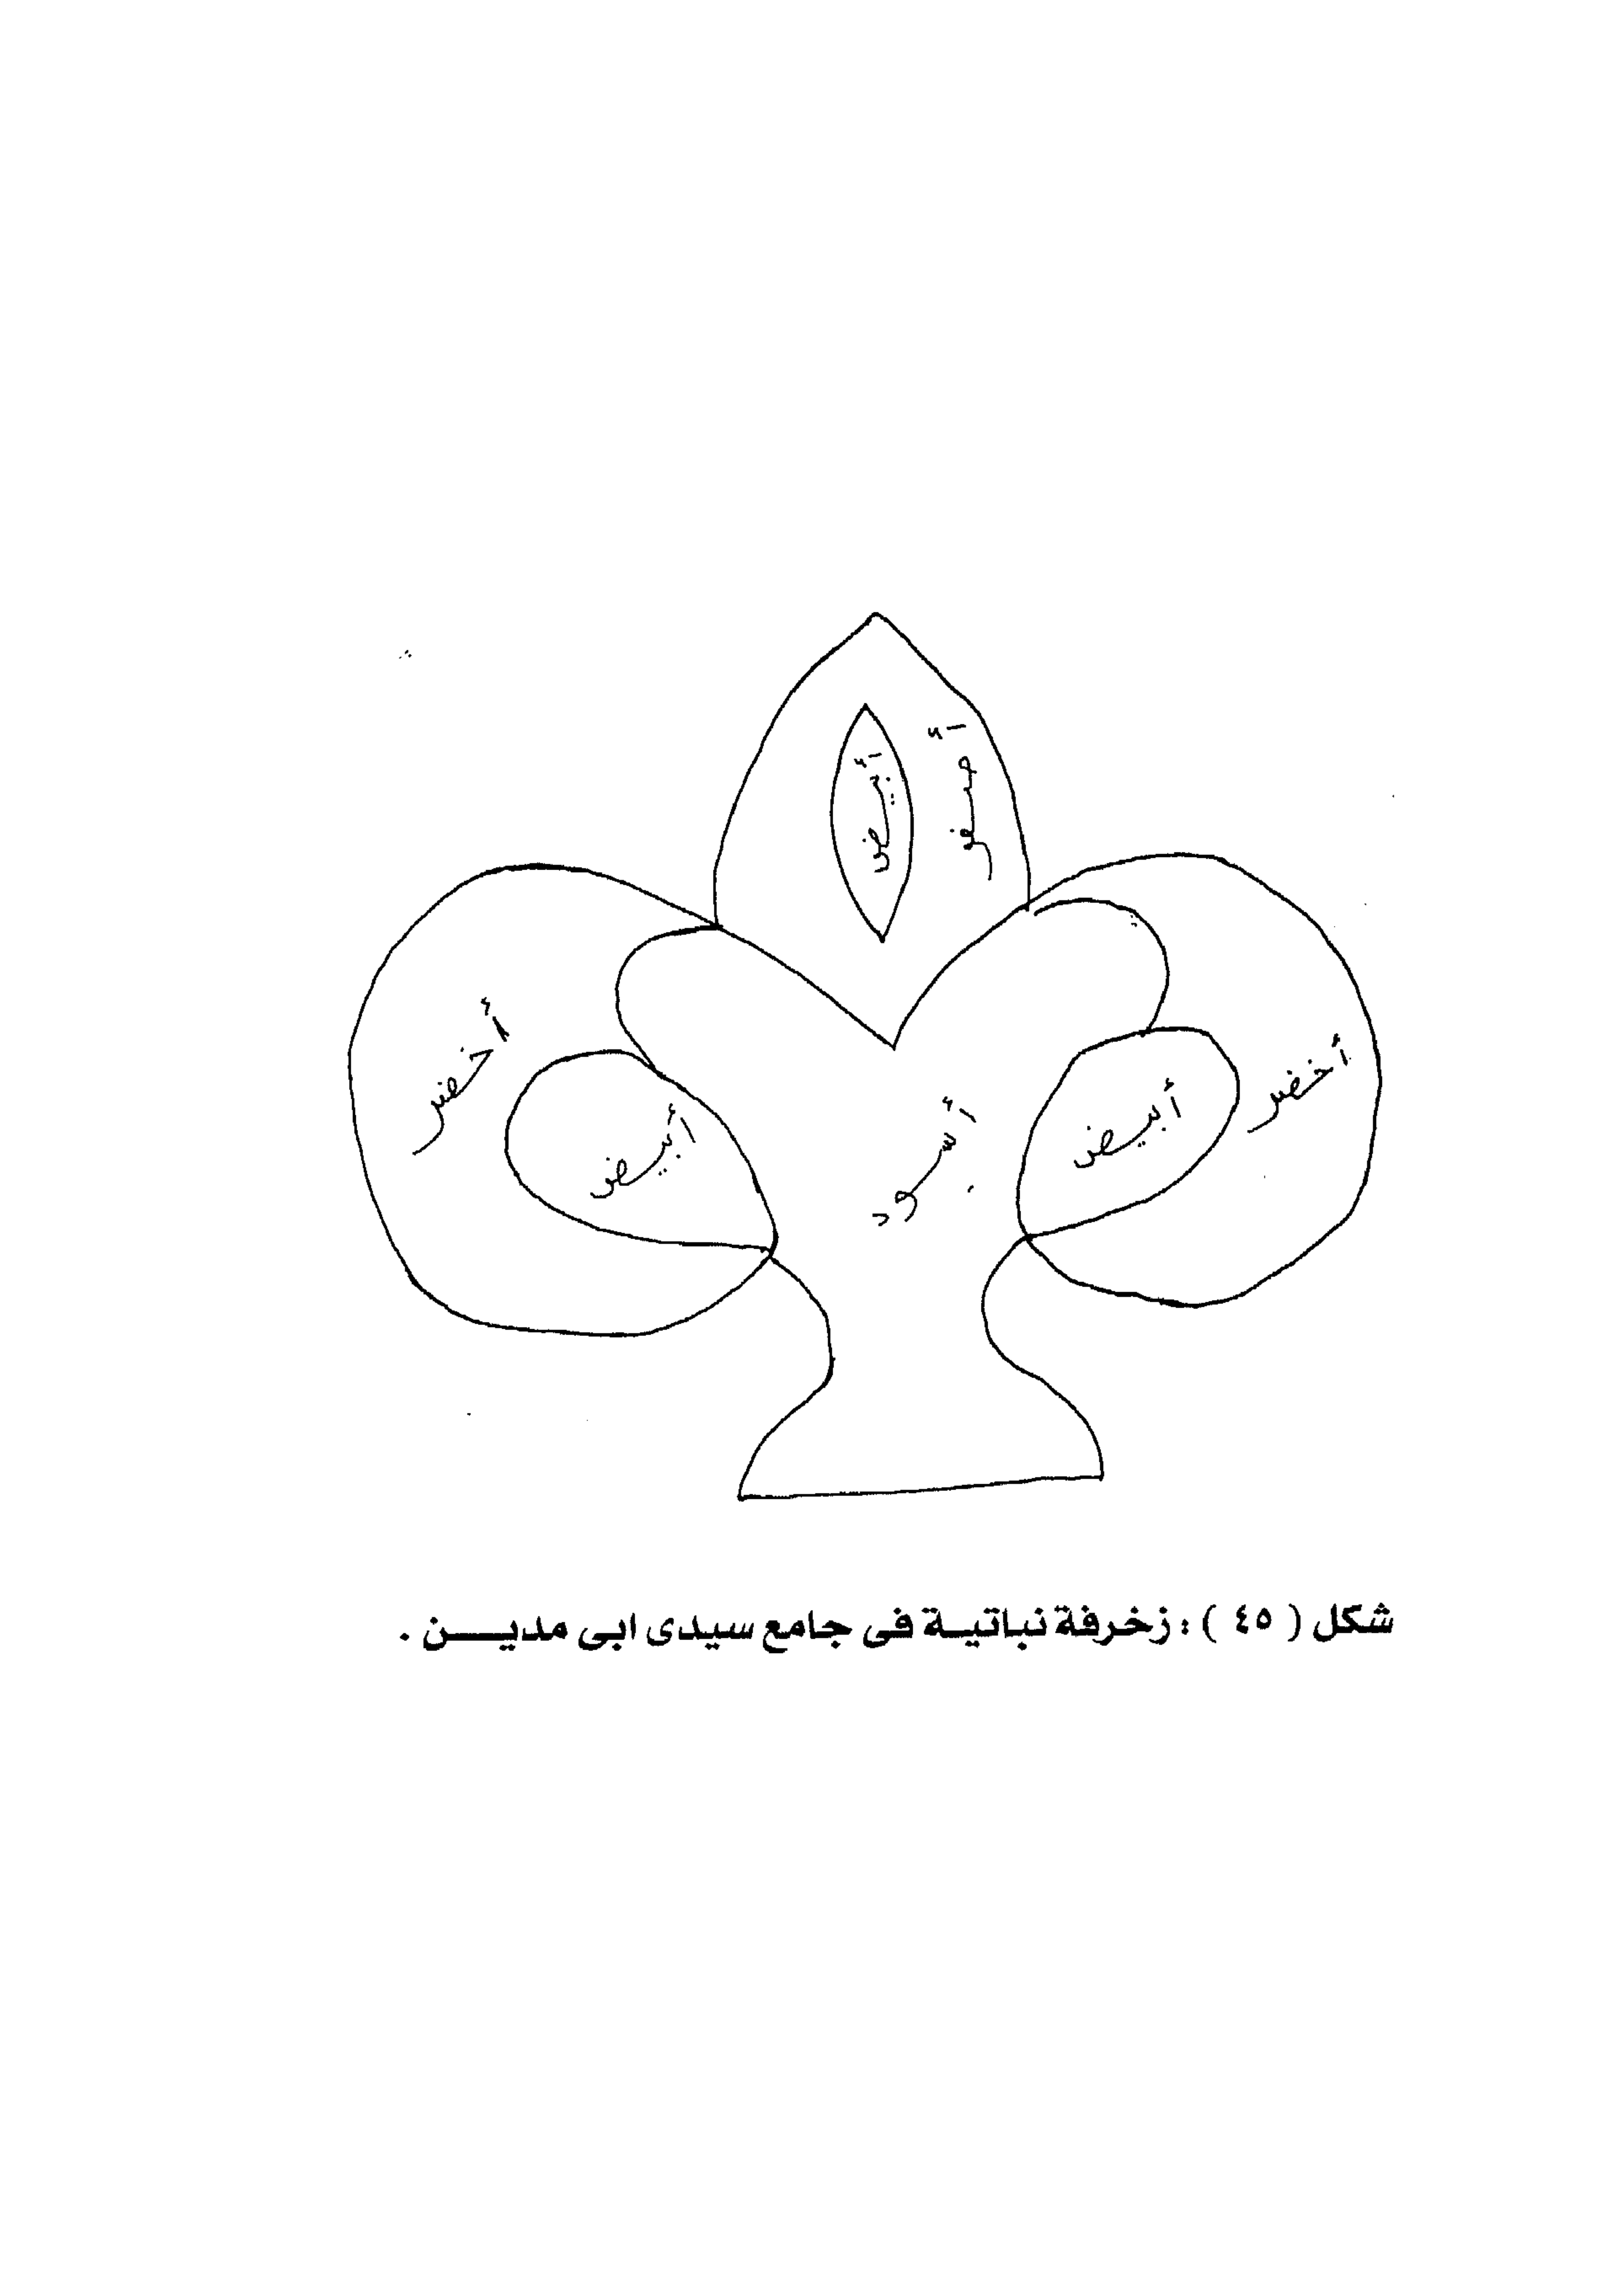 أبيض
أصفر
أخضر
أبيض
أسود
أبيض
أخضر
شكل ( ٤٥ ) : زخرفة نباتيـة فى جامع سيدى ابى مديـــن .